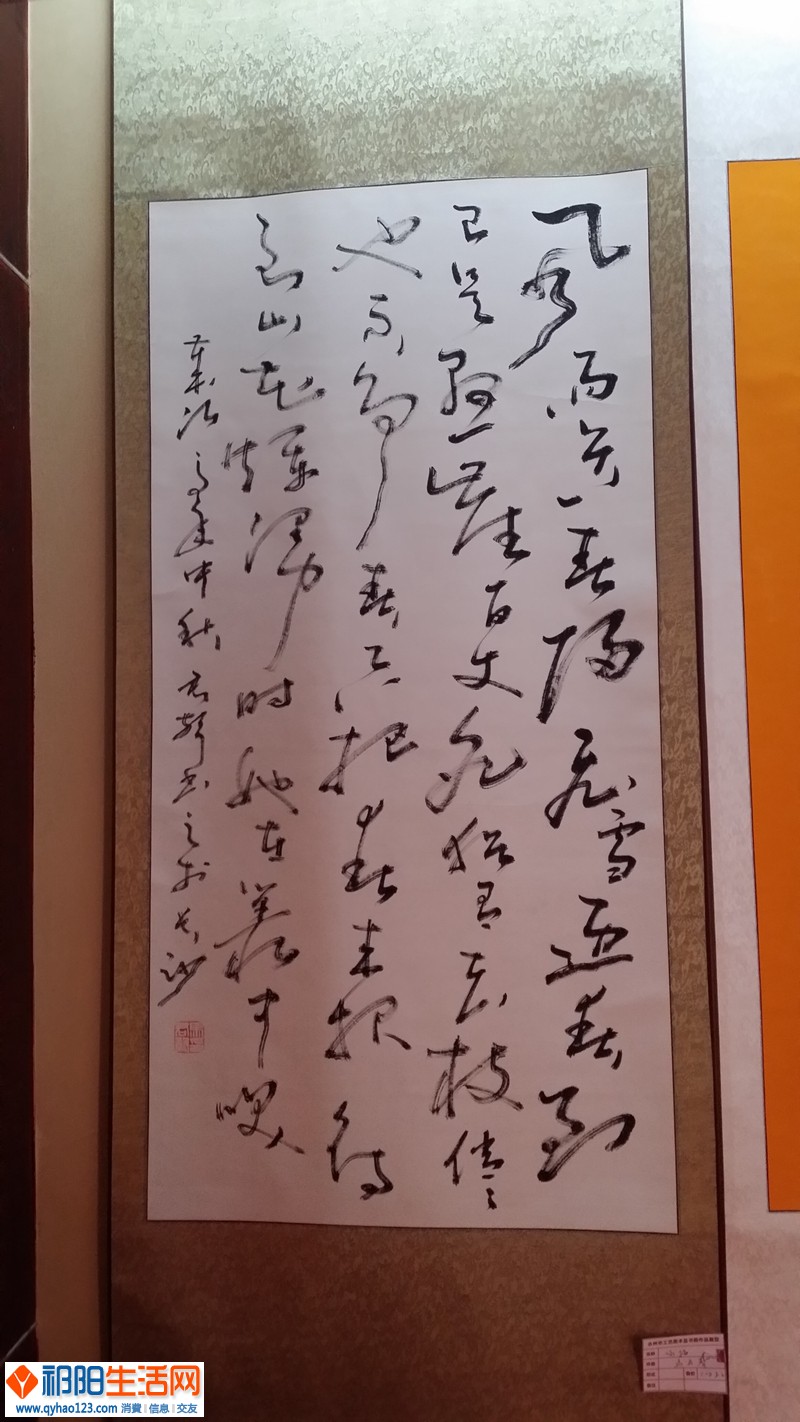 风雨送春归飞雪迎春到
已是悬崖百丈冰犹有花枝俏々
也不争春只把春来报待
到山花烂漫时她在丛中笑
中秋书之于长沙
祁阳生活网
www.qyhao123.com 消費 | 信息 | 交友